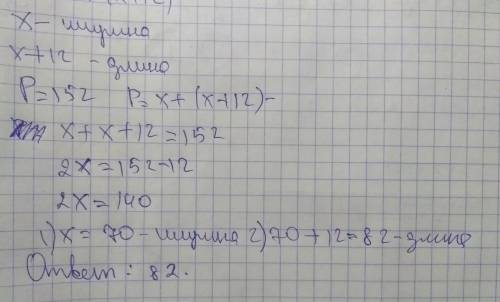 x - ширина
x+12 - длина
P=152 P=x+(x+12)-
x+x+12=152
2x=152-12
2x=140
1)x=70-ширина 2)70+12=82-длина
Ответ: 82.